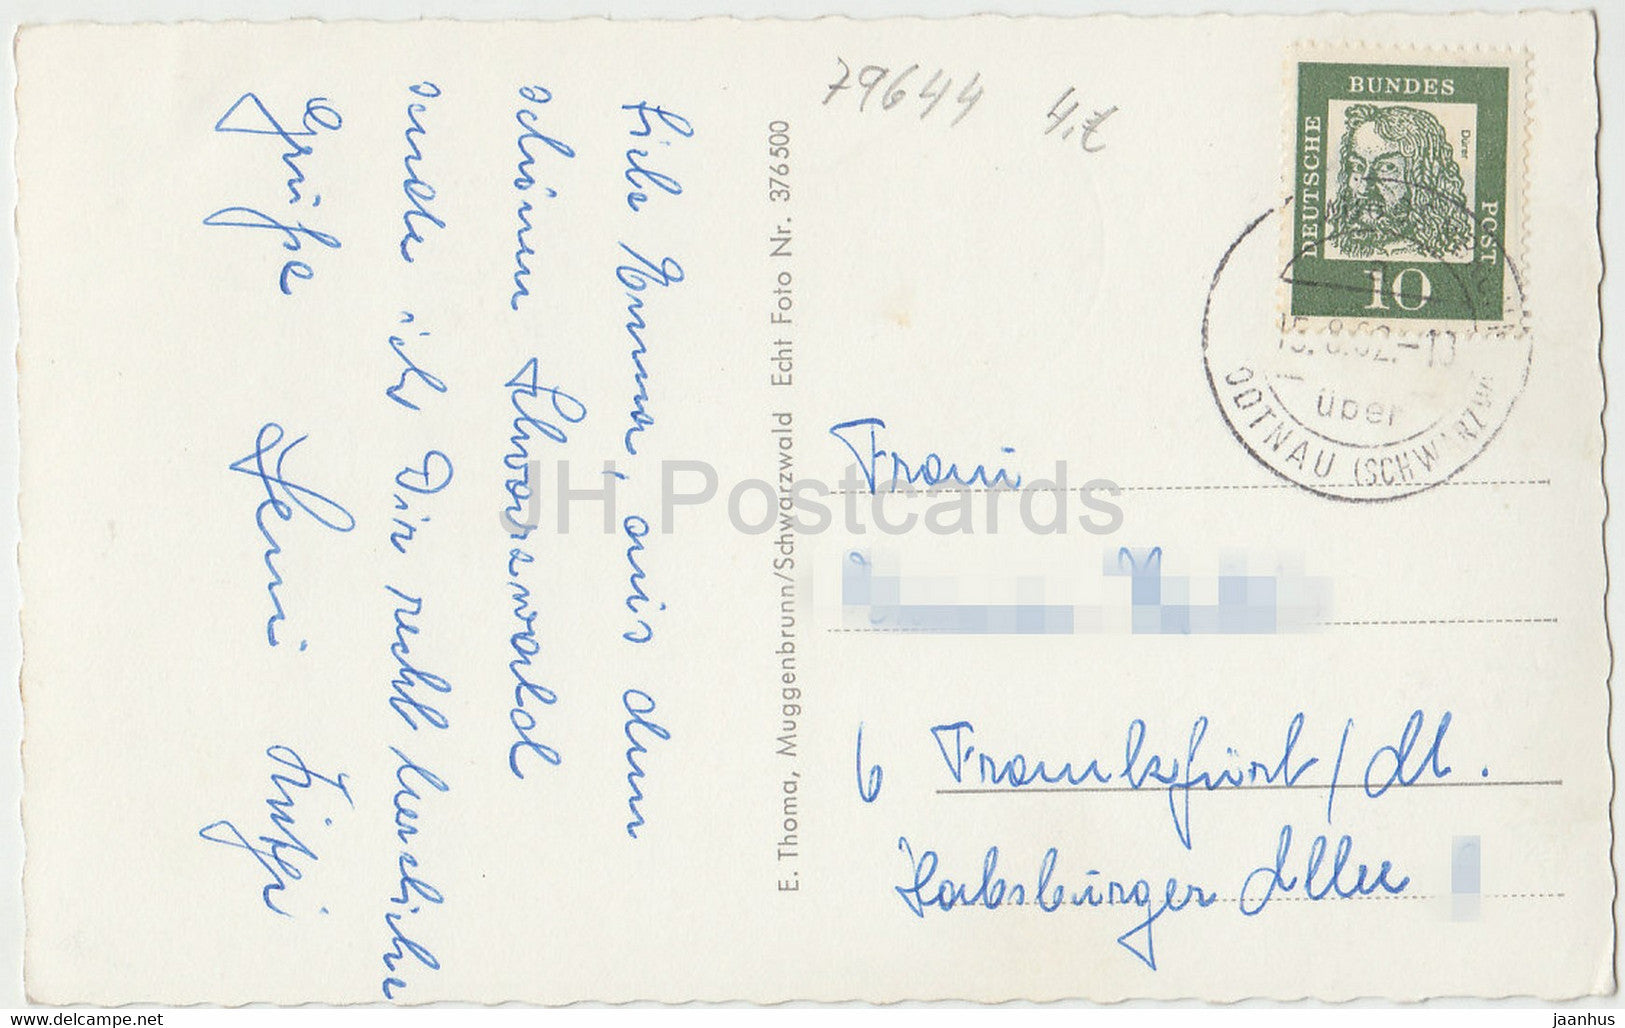 Liebe Emma, aus dem
schönen Schwarzwald
sende ich Dir recht herzliche
Grüße
Deine Kätzi
E. Thoma, Muggenbrunn/Schwarzwald Echt Foto Nr. 376500
79644 4.
DEUTSCHE BUNDES POST
Dürer
10
15.8.62.-10
über
TODTNAU (SCHWARZW
Frau
6 Frankfurt/M.
Habsburger Allee
JH Postcards
www.delcampe.net
jaanhus